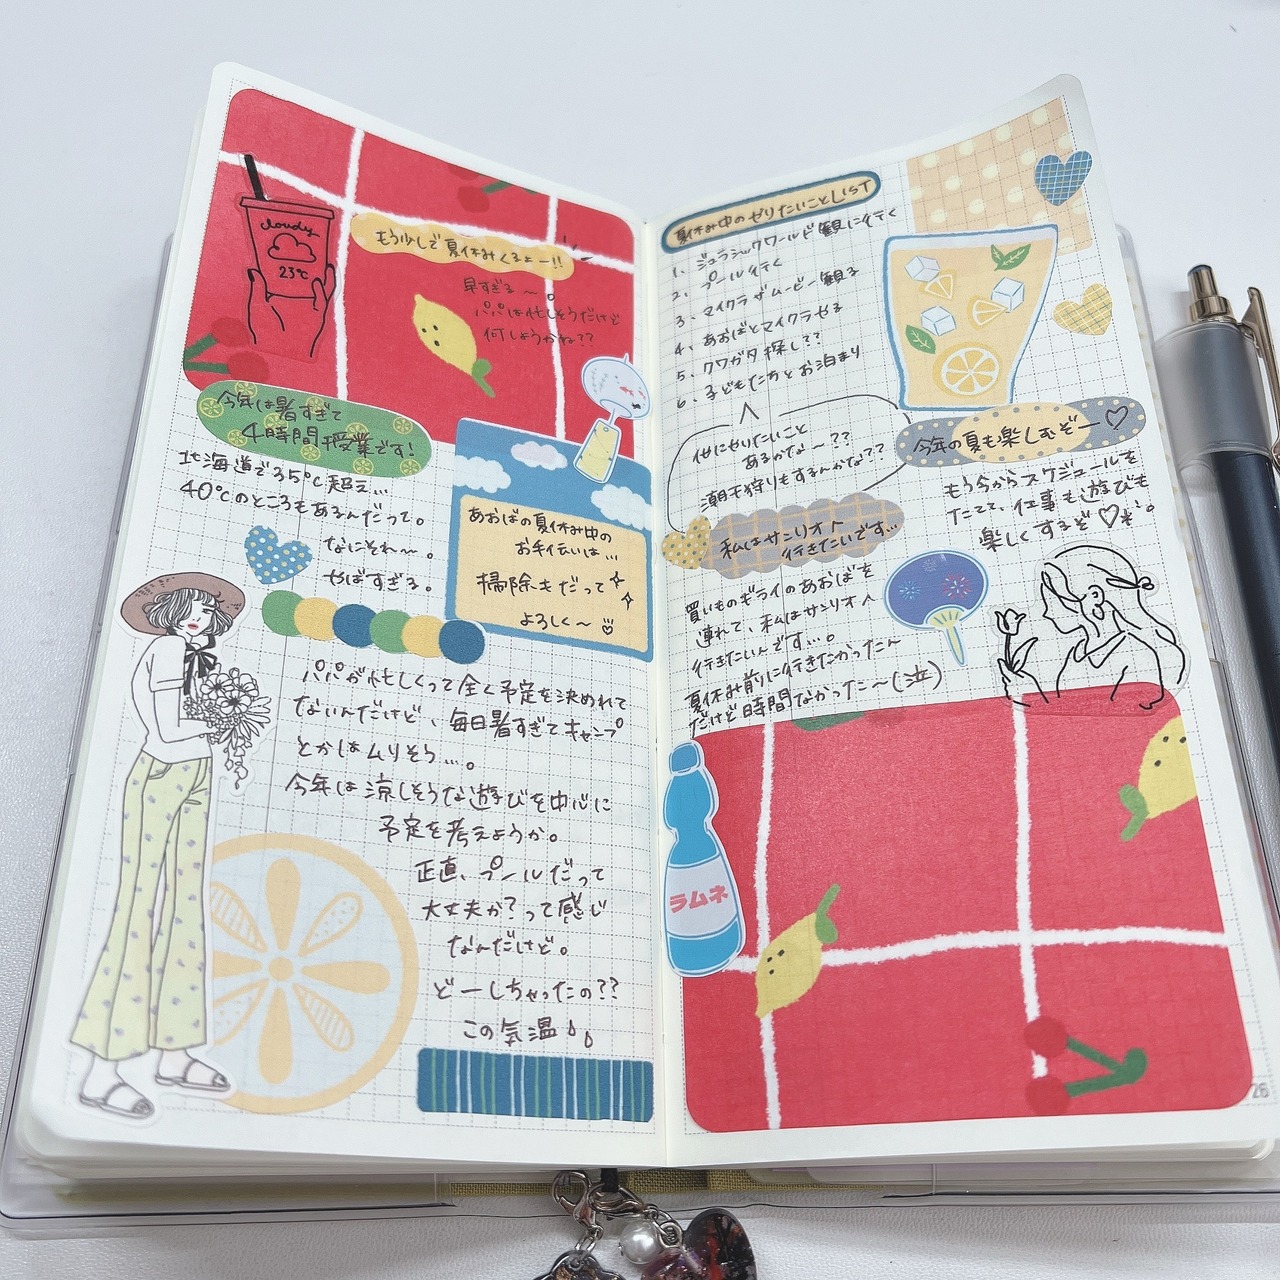 cloudy
23℃
もう少しで夏休みくるよー!!
早すぎる〜。
パパは忙しそうだけど
何しようかね??
今年は暑すぎて
4時間授業です!
北海道で35℃超え…
40℃のところもあるんだって。
なにそれ〜。
やばすぎる。
あおばの夏休み中の
お手伝いは…
掃除きだって
よろしく〜
パパが忙しくって全く予定を決めれて
ないんだけど、毎日暑すぎてキャンプ
とかはムリそう…。
今年は涼しそうな遊びを中心に
予定を考えようか。
正直、プールだって
大丈夫か?って感じ
なんだけど。
どーしちゃったの??
この気温
夏休み中のやりたいことLIST
1、ジュラシックワールド観に行く
2、プール行く
3、マイクラ ザムービー観る
4、あおばとマイクラやる
5、クワガタ探し??
6、子どもたちとお泊まり
他にやりたいこと
あるかな〜??
潮干狩りもするんかな??
私はサンリオへ
行きたいです…
買いものギライのあおばを
連れて、私はサンリオへ
行きたいんです…。
夏休み前に行きたかったん
だけど時間なかった〜(泣)
今年の夏も楽しむぞー♡
もう今からスケジュールを
たてて、仕事も遊びも
楽しくするぞ♡
ラムネ
26